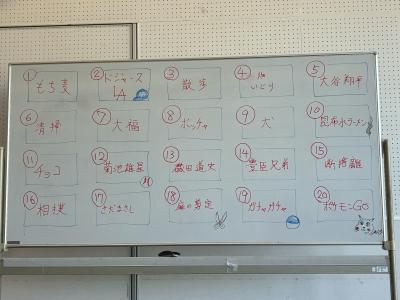 ① もち麦
② ドジャース
LA
③ 散歩
④
いじり
⑤ 大谷翔平
⑥ 清掃
⑦ 大福
⑧ ボッチャ
⑨ 犬
⑩ 昆布水ラーメン
⑪ チョコ
⑫ 菊池雄星
⑬ 織田道安
⑭ 豊臣兄弟
⑮ 断捨離
⑯ 相撲
⑰ さだまさし
⑱ 庭の剪定
⑲ ガチャガチャ
⑳ ポケモンGO